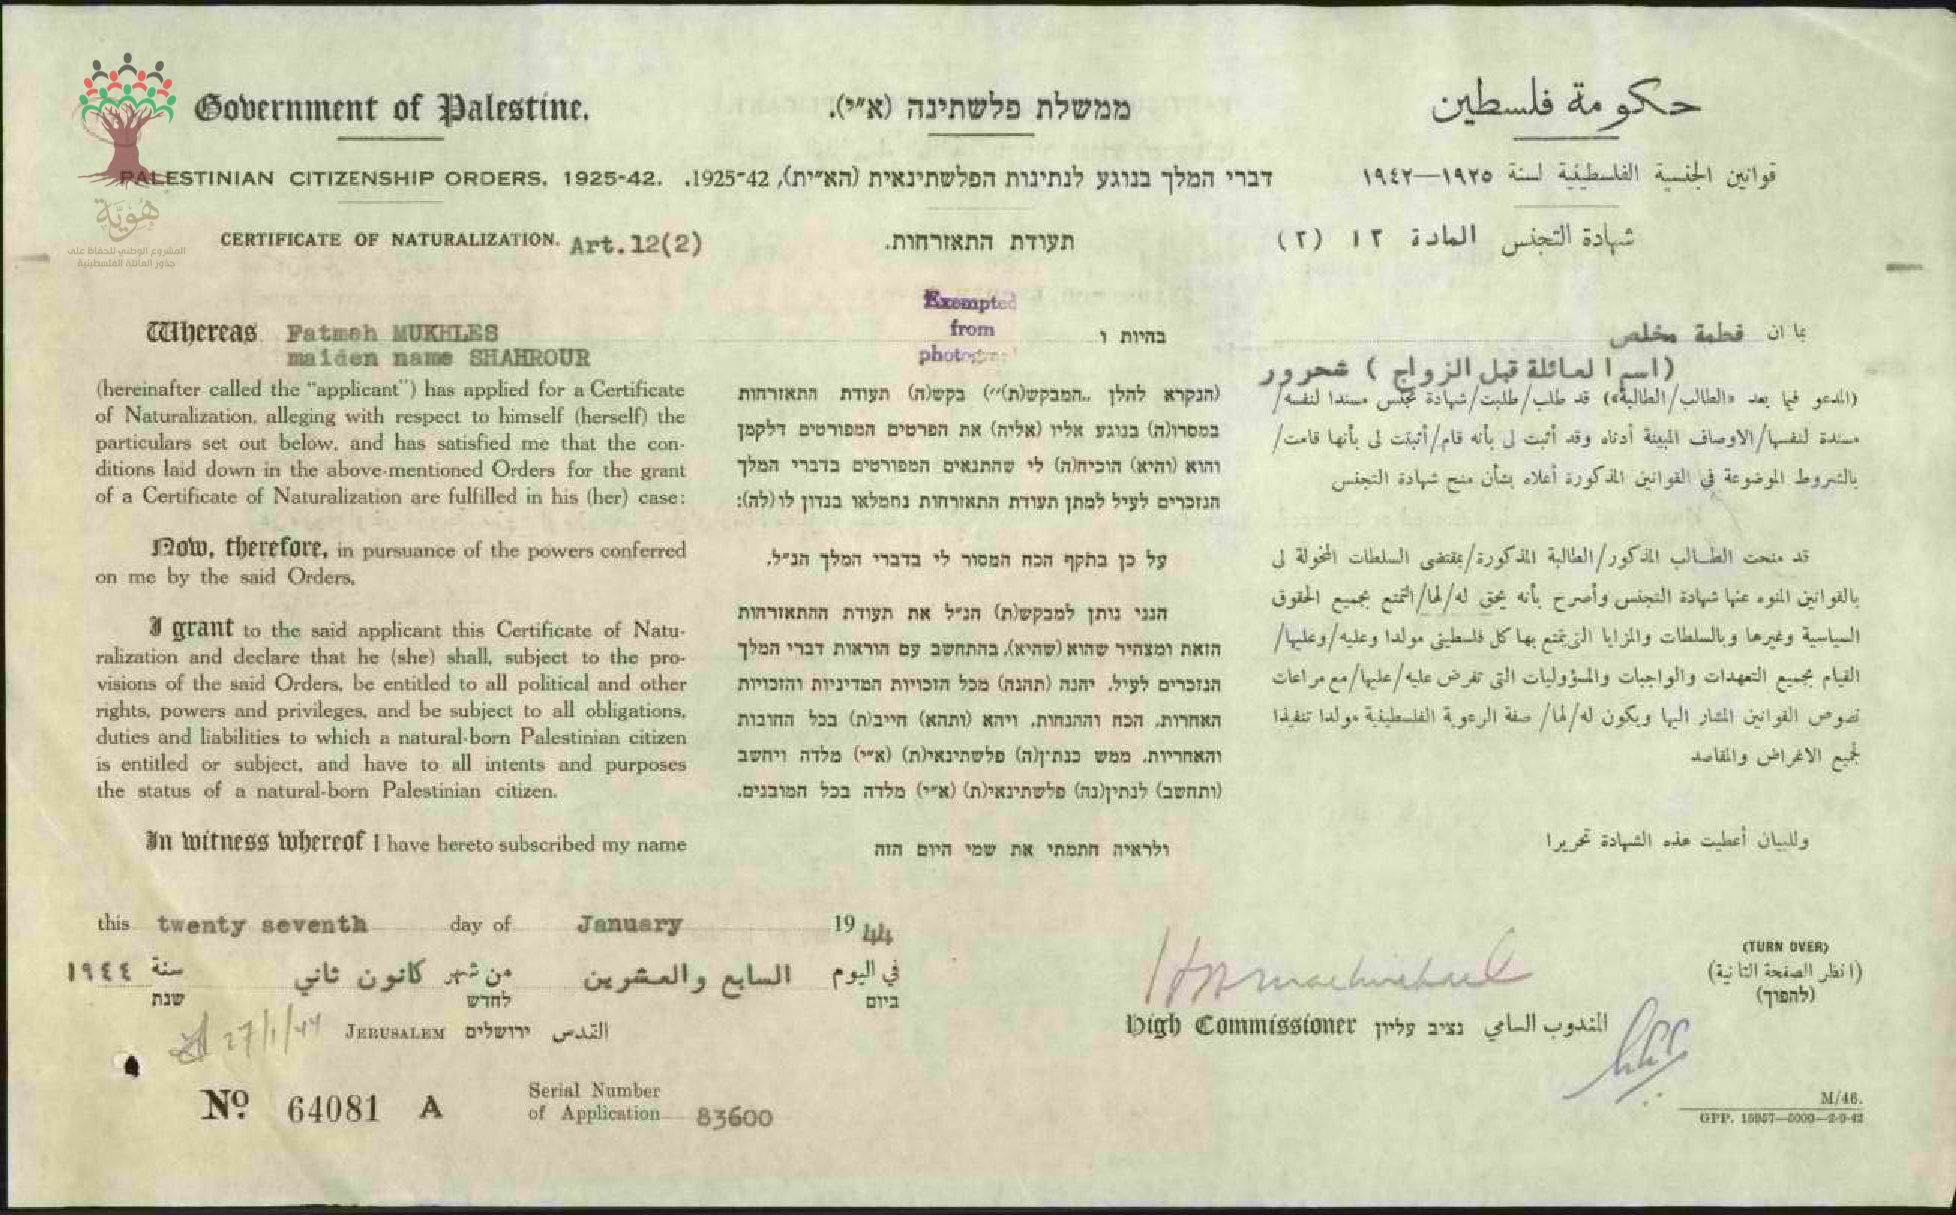 Government of Palestine.
ממשלת פלשתינה (א״י).
حكومة فلسطين
PALESTINIAN CITIZENSHIP ORDERS, 1925-42.
דברי המלך בנוגע לנתינות הפלשתינאית (הא״ית), 1925-42.
قوانين الجنسية الفلسطينية لسنة ١٩٢٥—١٩٤٢
هوية
المشروع الوطني للحفاظ على
جذور العائلة الفلسطينية
CERTIFICATE OF NATURALIZATION. Art.12(2)
תעודת התאזרחות.
شهادة التجنس المادة ١٢ (٢)
Exempted
from
Whereas Fatmeh MUKHLES
maiden name SHAHROUR
(hereinafter called the "applicant") has applied for a Certificate
of Naturalization, alleging with respect to himself (herself) the
particulars set out below, and has satisfied me that the con-
ditions laid down in the above-mentioned Orders for the grant
of a Certificate of Naturalization are fulfilled in his (her) case:
Now, therefore, in pursuance of the powers conferred
on me by the said Orders,
I grant to the said applicant this Certificate of Natu-
ralization and declare that he (she) shall, subject to the pro-
visions of the said Orders, be entitled to all political and other
rights, powers and privileges, and be subject to all obligations,
duties and liabilities to which a natural-born Palestinian citizen
is entitled or subject, and have to all intents and purposes
the status of a natural-born Palestinian citizen.
In witness whereof I have hereto subscribed my name
בהיות ו
(הנקרא להלן ,,המבקש(ת)״) בקש(ה) תעודת התאזרחות
במסרו(ה) בנוגע אליו (אליה) את הפרטים המפורטים דלקמן
והוא (והיא) הוכיח(ה) לי שהתנאים המפורטים בדברי המלך
הנזכרים לעיל למתן תעודת התאזרחות נתמלאו בנדון לו(לה):
על כן בתקף הכח המסור לי בדברי המלך הנ״ל,
הנני נותן למבקש(ת) הנ״ל את תעודת ההתאזרחות
הזאת ומצהיר שהוא (שהיא), בהתחשב עם הוראות דברי המלך
הנזכרים לעיל, יהנה (תהנה) מכל הזכויות המדיניות והזכויות
האחרות, הכח וההנחות, ויהא (ותהא) חייב(ת) בכל החובות
והאחריות, ממש כנתין(ה) פלשתינאי(ת) (א״י) מלדה ויחשב
(ותחשב) לנתין(נה) פלשתינאי(ת) (א״י) מלדה בכל המובנים.
ולראיה חתמתי את שמי היום הזה
بما ان فطمة مخلص
(اسم العائلة قبل الزواج) شحرور
(المدعو فيما بعد «الطالب/الطالبة») قد طلب/طلبت/شهادة تجنس مسندا لنفسه/
مسندة لنفسها/الاوصاف المبينة أدناه وقد أثبت لى بأنه قام/أثبتت لى بأنها قامت/
بالشروط الموضوعة في القوانين المذكورة أعلاه بشأن منح شهادة التجنس
قد منحت الطالب المذكور/الطالبة المذكورة/بمقتضى السلطات المخولة لى
بالقوانين المنوه عنها شهادة التجنس وأصرح بأنه يحق له/لها/التمتع بجميع الحقوق
السياسية وغيرها وبالسلطات والمزايا التى يتمتع بها كل فلسطينى مولدا وعليه/وعليها/
القيام بجميع التعهدات والواجبات والمسؤوليات التى تفرض عليه/عليها/مع مراعات
نصوص القوانين المشار اليها ويكون له/لها/ صفة الرعوية الفلسطينية مولدا تنفيذا
لجميع الاغراض والمقاصد
وللبيان أعطيت هذه الشهادة تحريرا
this twenty seventh day of January 1944
في اليوم السابع والعشرين من شهر كانون ثاني سنة ١٩٤٤
ביום לחדש שנת
27/1/44
JERUSALEM ירושלים القدس
High Commissioner נציב עליון المندوب السامي
(TURN OVER)
(انظر الصفحة الثانية)
(להפוך)
No. 64081 A
Serial Number
of Application 83600
M/46.
GPP. 15957—5000—2-9-42